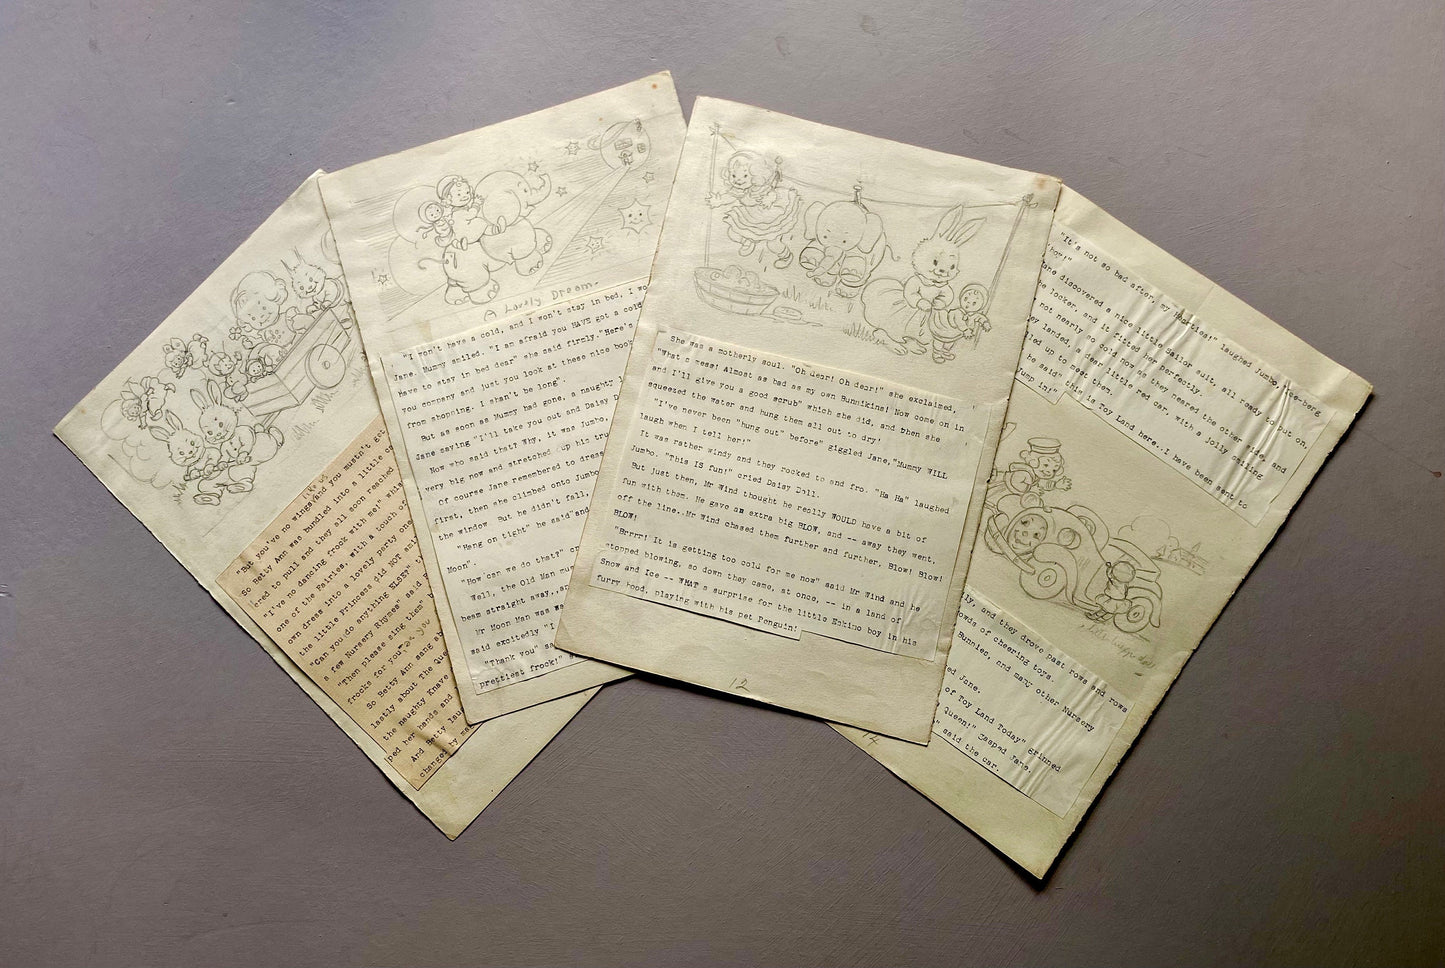 "But you've no wings/and you mustn't get
So Betty Ann was bundled into a little
ered to pull and they all soon reached
"I've no dancing frock with me!"
one of the Fairies. With a touch
own dress into a lovely party one
the little Princess did NOT
"Can you do anything ELSE?"
a few Nursery Rhymes" said
"Then please sing them"
frocks for you
So Betty Ann sang
lastly about The
the naughty Knave
ped her hands and
And Betty
changed by
A Lovely Dream.
"I won't have a cold, and I won't stay in bed, I
Jane. Mummy smiled. "I am afraid you HAVE got a cold
Have to stay in bed dear" she said firmly. "Here's
you company and just you look at these nice
from shopping. I shan't be long".
But as soon as Mummy had gone, a naughty
Jane saying "I'll take you out and Daisy
Now who said that? Why, it was Jumbo,
very big now and stretched up his
Of course Jane remembered to
first, then she climbed onto
the window. But he didn't fall,
"Hang on tight" he said "and
Moon".
"How can we do that?"
Well, the Old Man
beam straight away.,
Mr Moon Man was
said excitedly "I
"Thank you"
prettiest frock!"
She was a motherly soul. "Oh dear! Oh dear!" she exclaimed,
"What a mess! Almost as bad as my own Bunnikins! Now come on in
and I'll give you a good scrub" which she did, and then she
squeezed the water and hung them all out to dry!
"I've never been "hung out" before" giggled Jane, "Mummy WILL
laugh when I tell her!"
It was rather windy and they rocked to and fro. "Ha Ha" laughed
Jumbo. "This IS fun!" cried Daisy Doll.
But just then, Mr Wind thought he really WOULD have a bit of
fun with them. He gave an extra big BLOW, and -- away they went,
off the line..Mr Wind chased them further and further, Blow! Blow!
BLOW!
"Brrrr! It is getting too cold for me now" said Mr Wind and he
stopped blowing, so down they came, at once, -- in a land of
Snow and Ice -- WHAT a surprise for the little Eskimo boy in his
furry hood, playing with his pet Penguin!
12
"It's not so bad after, my Hearties!" laughed Jumbo,
Jane discovered a nice little Sailor suit, all ready to put on,
locker, and it fitted her perfectly.
not nearly so cold now as they neared the other side, and
landed, a dear little red car, with a jolly smiling
up to meet them.
he said" this is Toy Land here..I have been sent to
Jump in!"
and they drove past rows and rows
of cheering toys.
Bunnies, and many other Nursery
Jane.
of Toy Land Today" grinned
Queen!" Gasped Jane.
said the car.
14